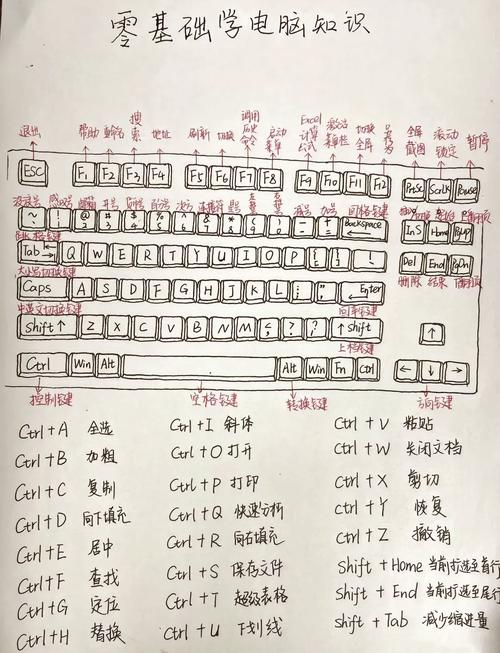 零基础学电脑知识
退出 帮助 重命名 搜索 地址 刷新 切换 调用历史命令 启动菜单 Excel计算公式 激活菜单栏 切换全屏 全屏截图 滚动锁定 暂停
ESC F1 F2 F3 F4 F5 F6 F7 F8 F9 F10 F11 F12 PrtSc ScrLK Pause
波浪号 感叹号 井号 减号 加号 回格键
~ ! @ 2 # 3 $ 4 % 5 ^ 6 & 7 * 8 ( 9 ) 0 - + = Backspace InS Home PgUp
Tab Q W E R T Y U I O P { [ } ] Del End PgDn
大小写切换键 删除 结束
Caps A S D F G H J K L ; " Enter
中英文切换键 回车键
Shift ↑ Z X C V B N M < > ? ↑ shift ↑
上档键
Ctrl Win Alt Alt Win Fn Ctrl ← ↓ →
控制键 空格键 转换键 方向键
Ctrl + A 全选
Ctrl + B 加粗
Ctrl + C 复制
Ctrl + D 向下填充
Ctrl + E 居中
Ctrl + F 查找
Ctrl + G 定位
Ctrl + H 替换
Ctrl + I 斜体
Ctrl + O 打开
Ctrl + P 打印
Ctrl + Q 快速分析
Ctrl + R 向右填充
Ctrl + S 保存文件
Ctrl + T 超级表格
Ctrl + U 下划线
Ctrl + V 粘贴
Ctrl + W 关闭文档
Ctrl + X 剪切
Ctrl + Y 恢复
Ctrl + Z 撤销
Shift + Home 当前打选至首行
Shift + End 当前打选至尾行
shift + Tab 减少缩进量